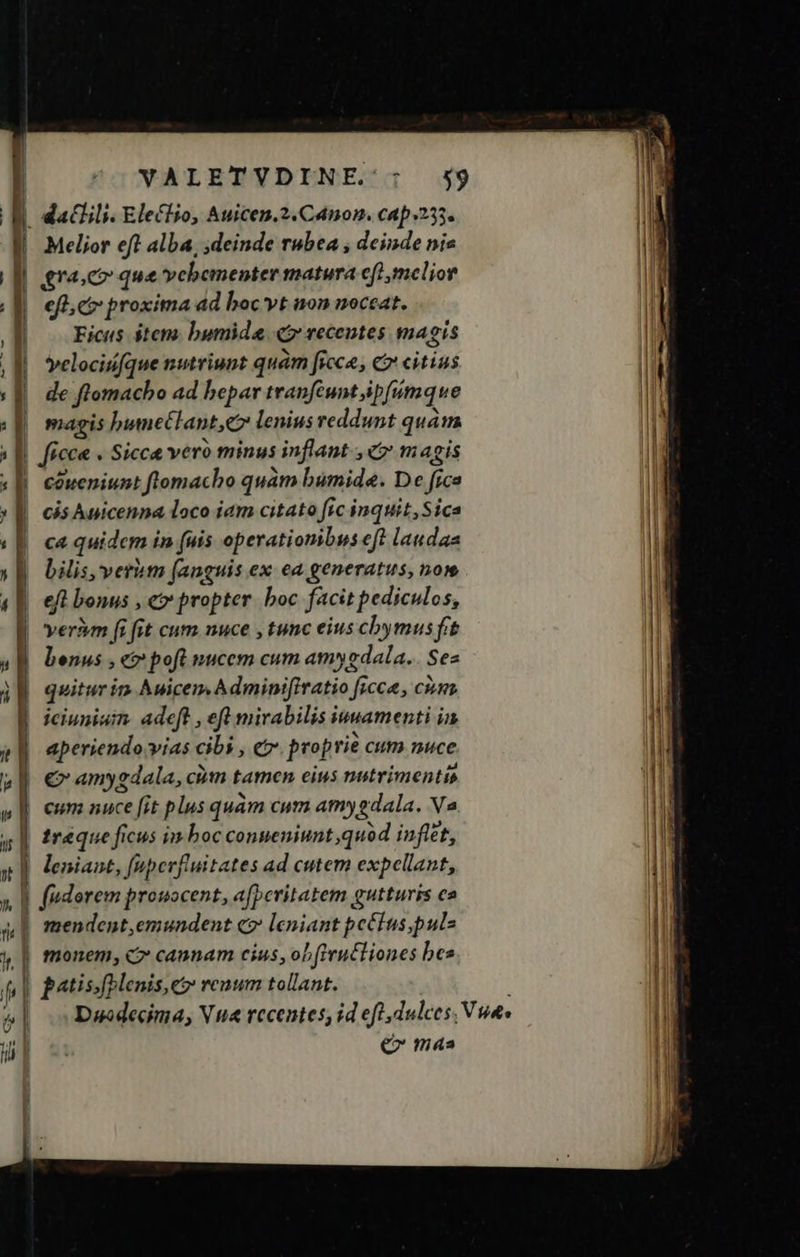 VALETVDINE. 59
dactili. Electio, Auicen.2.Canon. cap.235.
Melior eſt alba, ,deinde rubea, deinde nie
gra,& quæ vehementer matura eſt,melior
eſt,& proxima ad hoc vt non noceat.
Ficus item humidæ & recentes magis
velociúſque nutriunt quàm ſiccæ, & citius
de ſtomacho ad hepar tranſeunt,ipſúmque
magis humectant,& lenius reddunt quàm
ſiccæ. Siccæ verò minus inflant, & magis
cõueniunt ſtomacho quàm humidæ. De ſica
cis Auicenna loco iam citato ſic inquit, Sica
ca quidem in ſuis operationibus eſt laudaa
bilis, verùm ſanguis ex ea generatus, non
eſt bonus, & propter hoc facit pediculos,
verùm ſi ſit cum nuce, tunc eius chymus fit
bonus, & poſt nucem cum amygdala. Se=
quitur in Auicen. Adminiſtratio ſiccæ, cùm
ieiunium adeſt, eſt mirabilis iuuamenti in
aperiendo vias cibi, & propriè cum nuce
& amygdala, cùm tamen eius nutrimentũ
cum nuce ſit plus quàm cum amygdala. Va
træque ficus in hoc conueniunt,quòd inflẽt,
leniant, ſuperfluitates ad cutem expellant,
ſudorem prouocent, aſperitatem gutturis ea
mendent,emundent & leniant pectus,pul=
monem, & cannam eius, obſtructiones hea
patis,ſplenis,& renum tollant.
Duodecima, Vuæ recentes, id eſt,dulces. Vuæ.
& maa